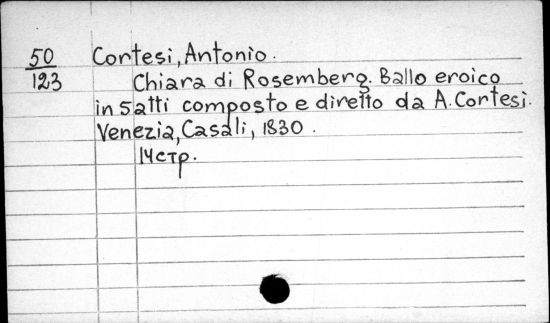 50 Cortesi, Antonio.
123 Chiara di Rosemberg. Ballo eroico
in 5 atti composto e diretto da A. Cortesi.
Venezia, Casali, 1830.
14 стр.